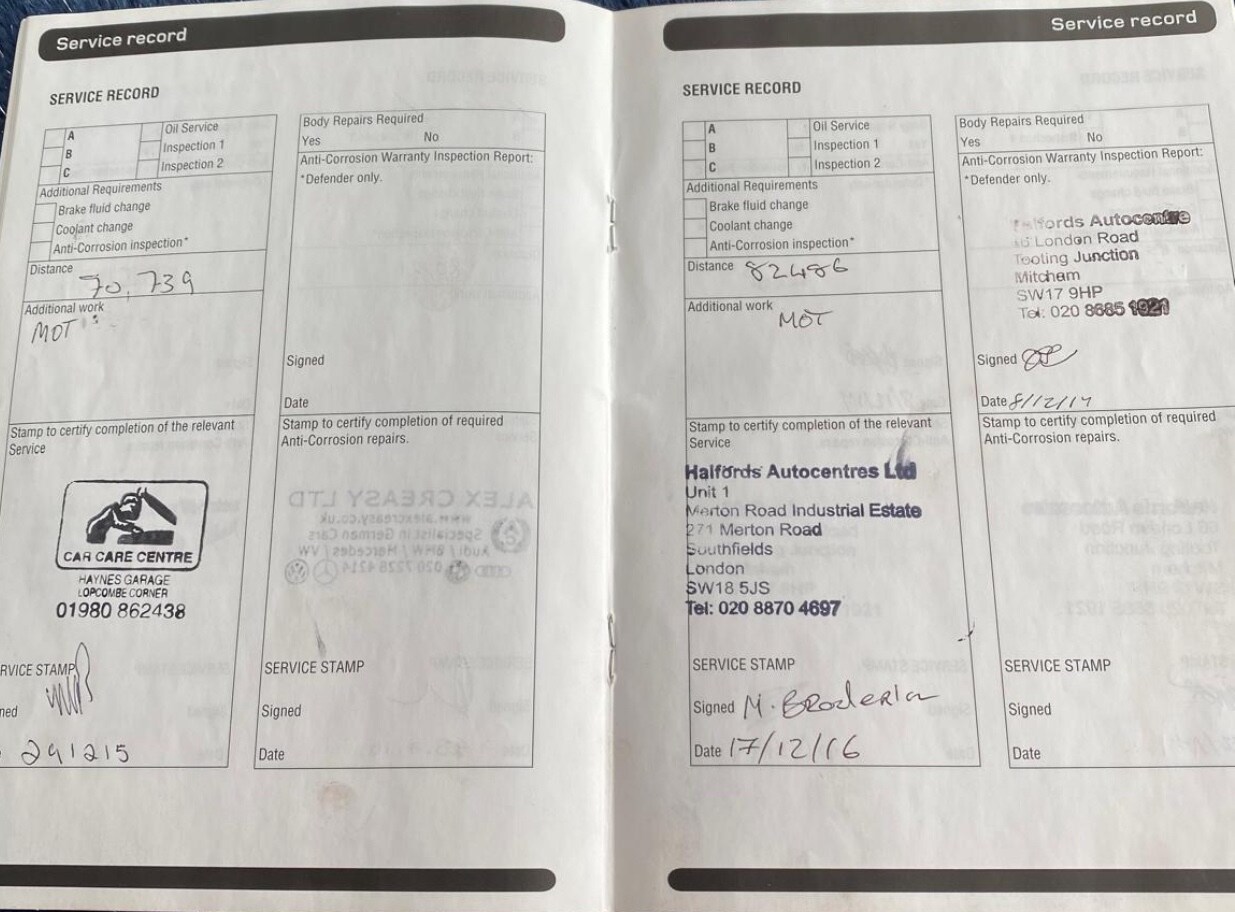 Service record
SERVICE RECORD
A
B
C
Oil Service
Inspection 1
Inspection 2
Additional Requirements
Brake fluid change
Coolant change
Anti-Corrosion inspection*
Distance
70,739
Additional work
MOT
Stamp to certify completion of the relevant
Service
CAR CARE CENTRE
HAYNES GARAGE
LOPCOMBE CORNER
01980 862438
RVICE STAMP
ned
291215
Body Repairs Required
Yes No
Anti-Corrosion Warranty Inspection Report:
*Defender only.
Signed
Date
Stamp to certify completion of required
Anti-Corrosion repairs.
SERVICE STAMP
Signed
Date
Service record
SERVICE RECORD
A
B
C
Oil Service
Inspection 1
Inspection 2
Additional Requirements
Brake fluid change
Coolant change
Anti-Corrosion inspection*
Distance 82486
Additional work
MOT
Stamp to certify completion of the relevant
Service
Halfords Autocentres Ltd
Unit 1
Merton Road Industrial Estate
271 Merton Road
Southfields
London
SW18 5JS
Tel: 020 8870 4697
SERVICE STAMP
Signed M. 
Date 17/12/16
Body Repairs Required
Yes No
Anti-Corrosion Warranty Inspection Report:
*Defender only.
Halfords Autocentre
London Road
Tooling Junction
Mitcham
SW17 9HP
Tel: 020 8685 1921
Signed
Date 8/12/17
Stamp to certify completion of required
Anti-Corrosion repairs.
SERVICE STAMP
Signed
Date